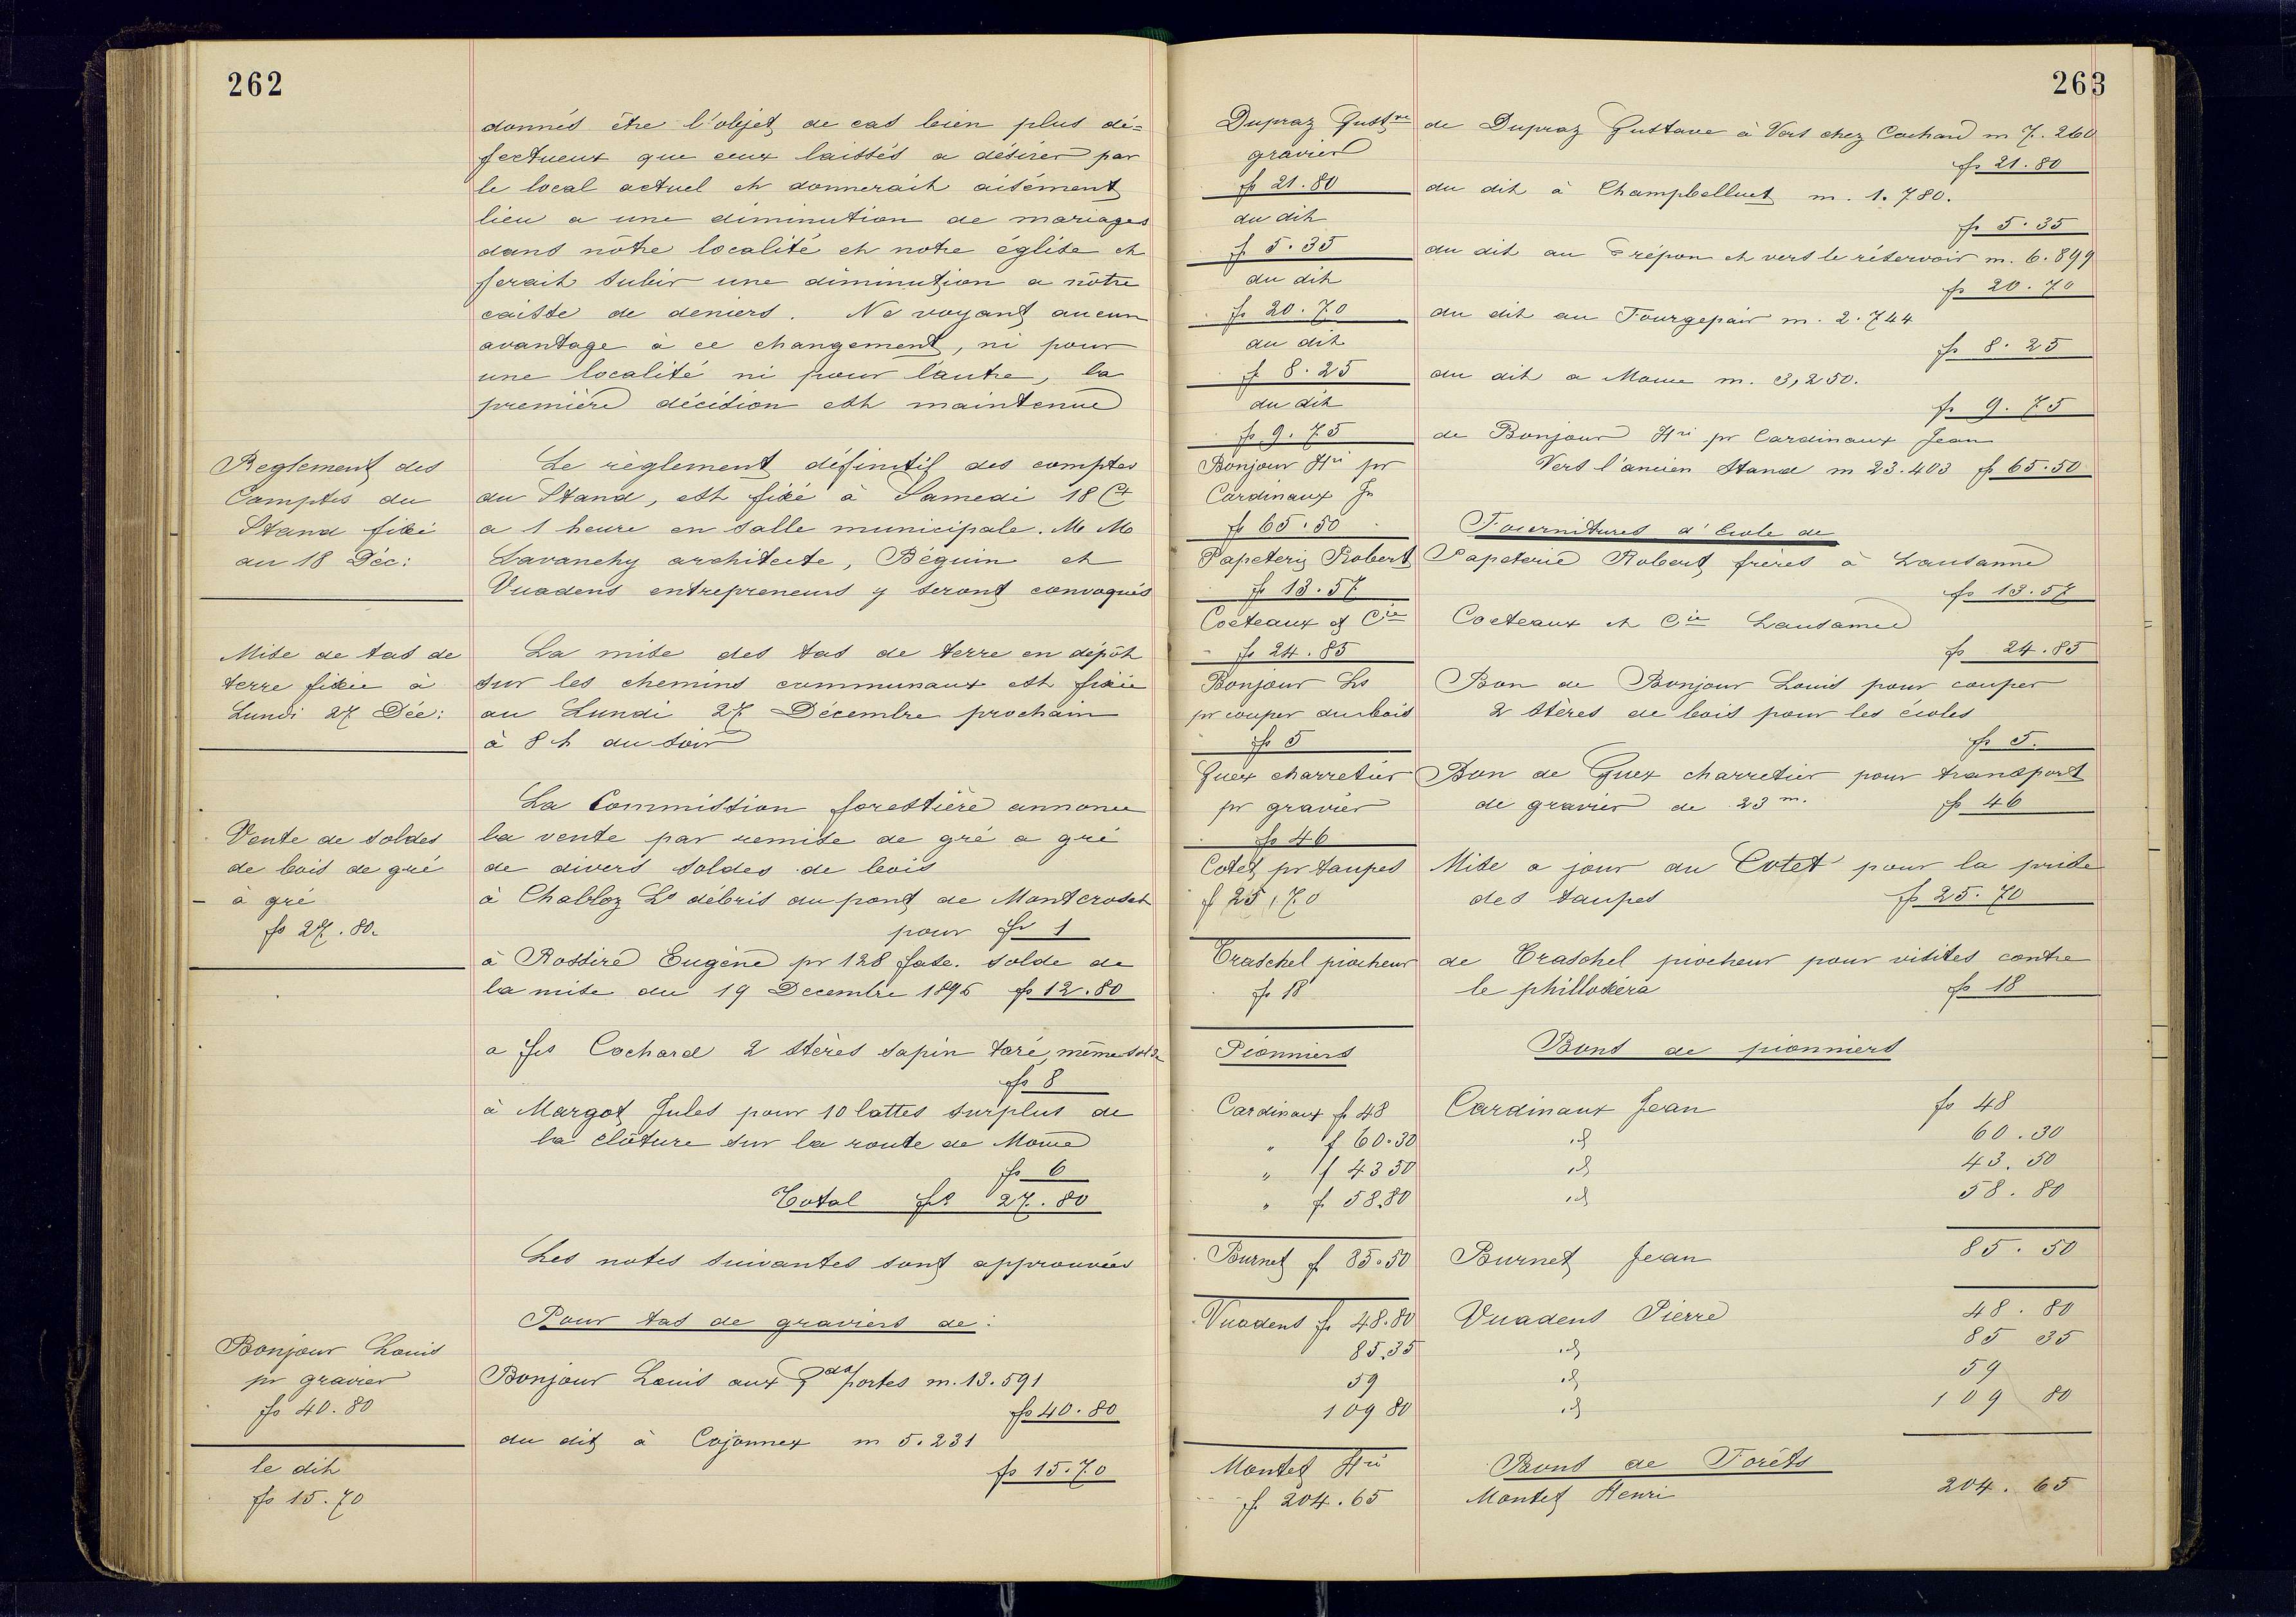 262
donnés être l'objet de cas bien plus dé=
fectueux que ceux laissés a désirer par
le local actuel et donnerait aisément
lieu a une diminution de mariages
dans nôtre localité et notre église et
ferait subir une diminution a nôtre
caisse de deniers. Ne voyant aucun
avantage à ce changement, ni pour
une localité ni pour l'autre, la
première décision est maintenue
Reglement des
Comptes du
Stand fixé
au 18 Déc:
Le règlement définitif des comptes
du Stand, est fixé à Samedi 18 Ct
a 1 heure en salle municipale. M M
Lavanchy architecte, Béguin et
Vuadens entrepreneurs y seront convoqués
Mise de tas de
terre fixée à
Lundi 27 Déc:
La mise des tas de terre en dépôt
sur les chemins communaux est fixée
au Lundi 27 Décembre prochain
à 8 h du soir
Vente de soldes
de bois de gré
à gré
fs 27.80.
La Commission forestière annonce
la vente par remise de gré a gré
de divers soldes de bois
à Chabloz Ls débris du pont de Montcroset
pour fr 1
à Rossire Eugène pr 128 fasc. solde de
la mise du 19 Decembre 1896 fs 12.80
a Jes Cochard 2 stères sapin taré, même solde
fs 8
à Margot Jules pour 10 lattes surplus de
la clôture sur la route de Mome
fs 6
Total frs 27.80
Les notes suivantes sont approuvées
Pour tas de graviers de:
Bonjour Louis
pr gravier
fs 40.80
Bonjour Louis aux Gdes portes m. 13.591
fs 40.80
du dit à Cojonnex m 5.231
fs 15.70
le dit
fs 15.70
263
Dupraz Gustve
gravier
fs 21.80
de Dupraz Gustave à Vers chez Cochard m 7.260
fs 21.80
du dit
f 5.35
du dit à Champbelluet m. 1.780.
fs 5.35
du dit
fs 20.70
du dit au Crépon et vers le réservoir m. 6.899
fs 20.70
du dit
f 8.25
du dit au Fourgepair m. 2.744
fs 8.25
du dit
fs 9.75
du dit a Mome m. 3,250.
fs 9.75
Bonjour Hri pr
Cardinaux Jn
fs 65.50
de Bonjour Hri pr Cardinaux Jean
Vers l'ancien Stand m 23.403 fs 65.50
Fournitures d'école de
Papeterie Robert
fs 13.57
Papeterie Robert frères à Lausanne
fs 13.57
Cocteaux et Cie
fs 24.85
Cocteaux et Cie Lausanne
fs 24.85
Bonjour Ls
pr couper du bois
fs 5
Bon de Bonjour Louis pour couper
2 stères de bois pour les écoles
fs 5.
Guex charretier
pr gravier
fs 46
Bon de Guex charretier pour transport
de gravier de 23 m.
fs 46
Cotet pr taupes
f 25,70
Mise a jour du Cotet pour la prise
des taupes fs 25.70
Traschel piocheur
fr 18
de Traschel piocheur pour visites contre
le philloxéra fs 18
Pionniers
Bons de pionniers
Cardinaux fs 48
" f 60.30
" f 43 50
" f 58.80
Cardinaux Jean fs 48
id 60.30
id 43.50
id 58.80
Burnet f 85.50
Burnet Jean 85.50
Vuadens fs 48.80
85.35
59
109 80
Vuadens Pierre 48.80
id 85 35
id 59
id 109 80
Montet Hri
fs 204.65
Bons de Forêts
Montet Henri 204.65